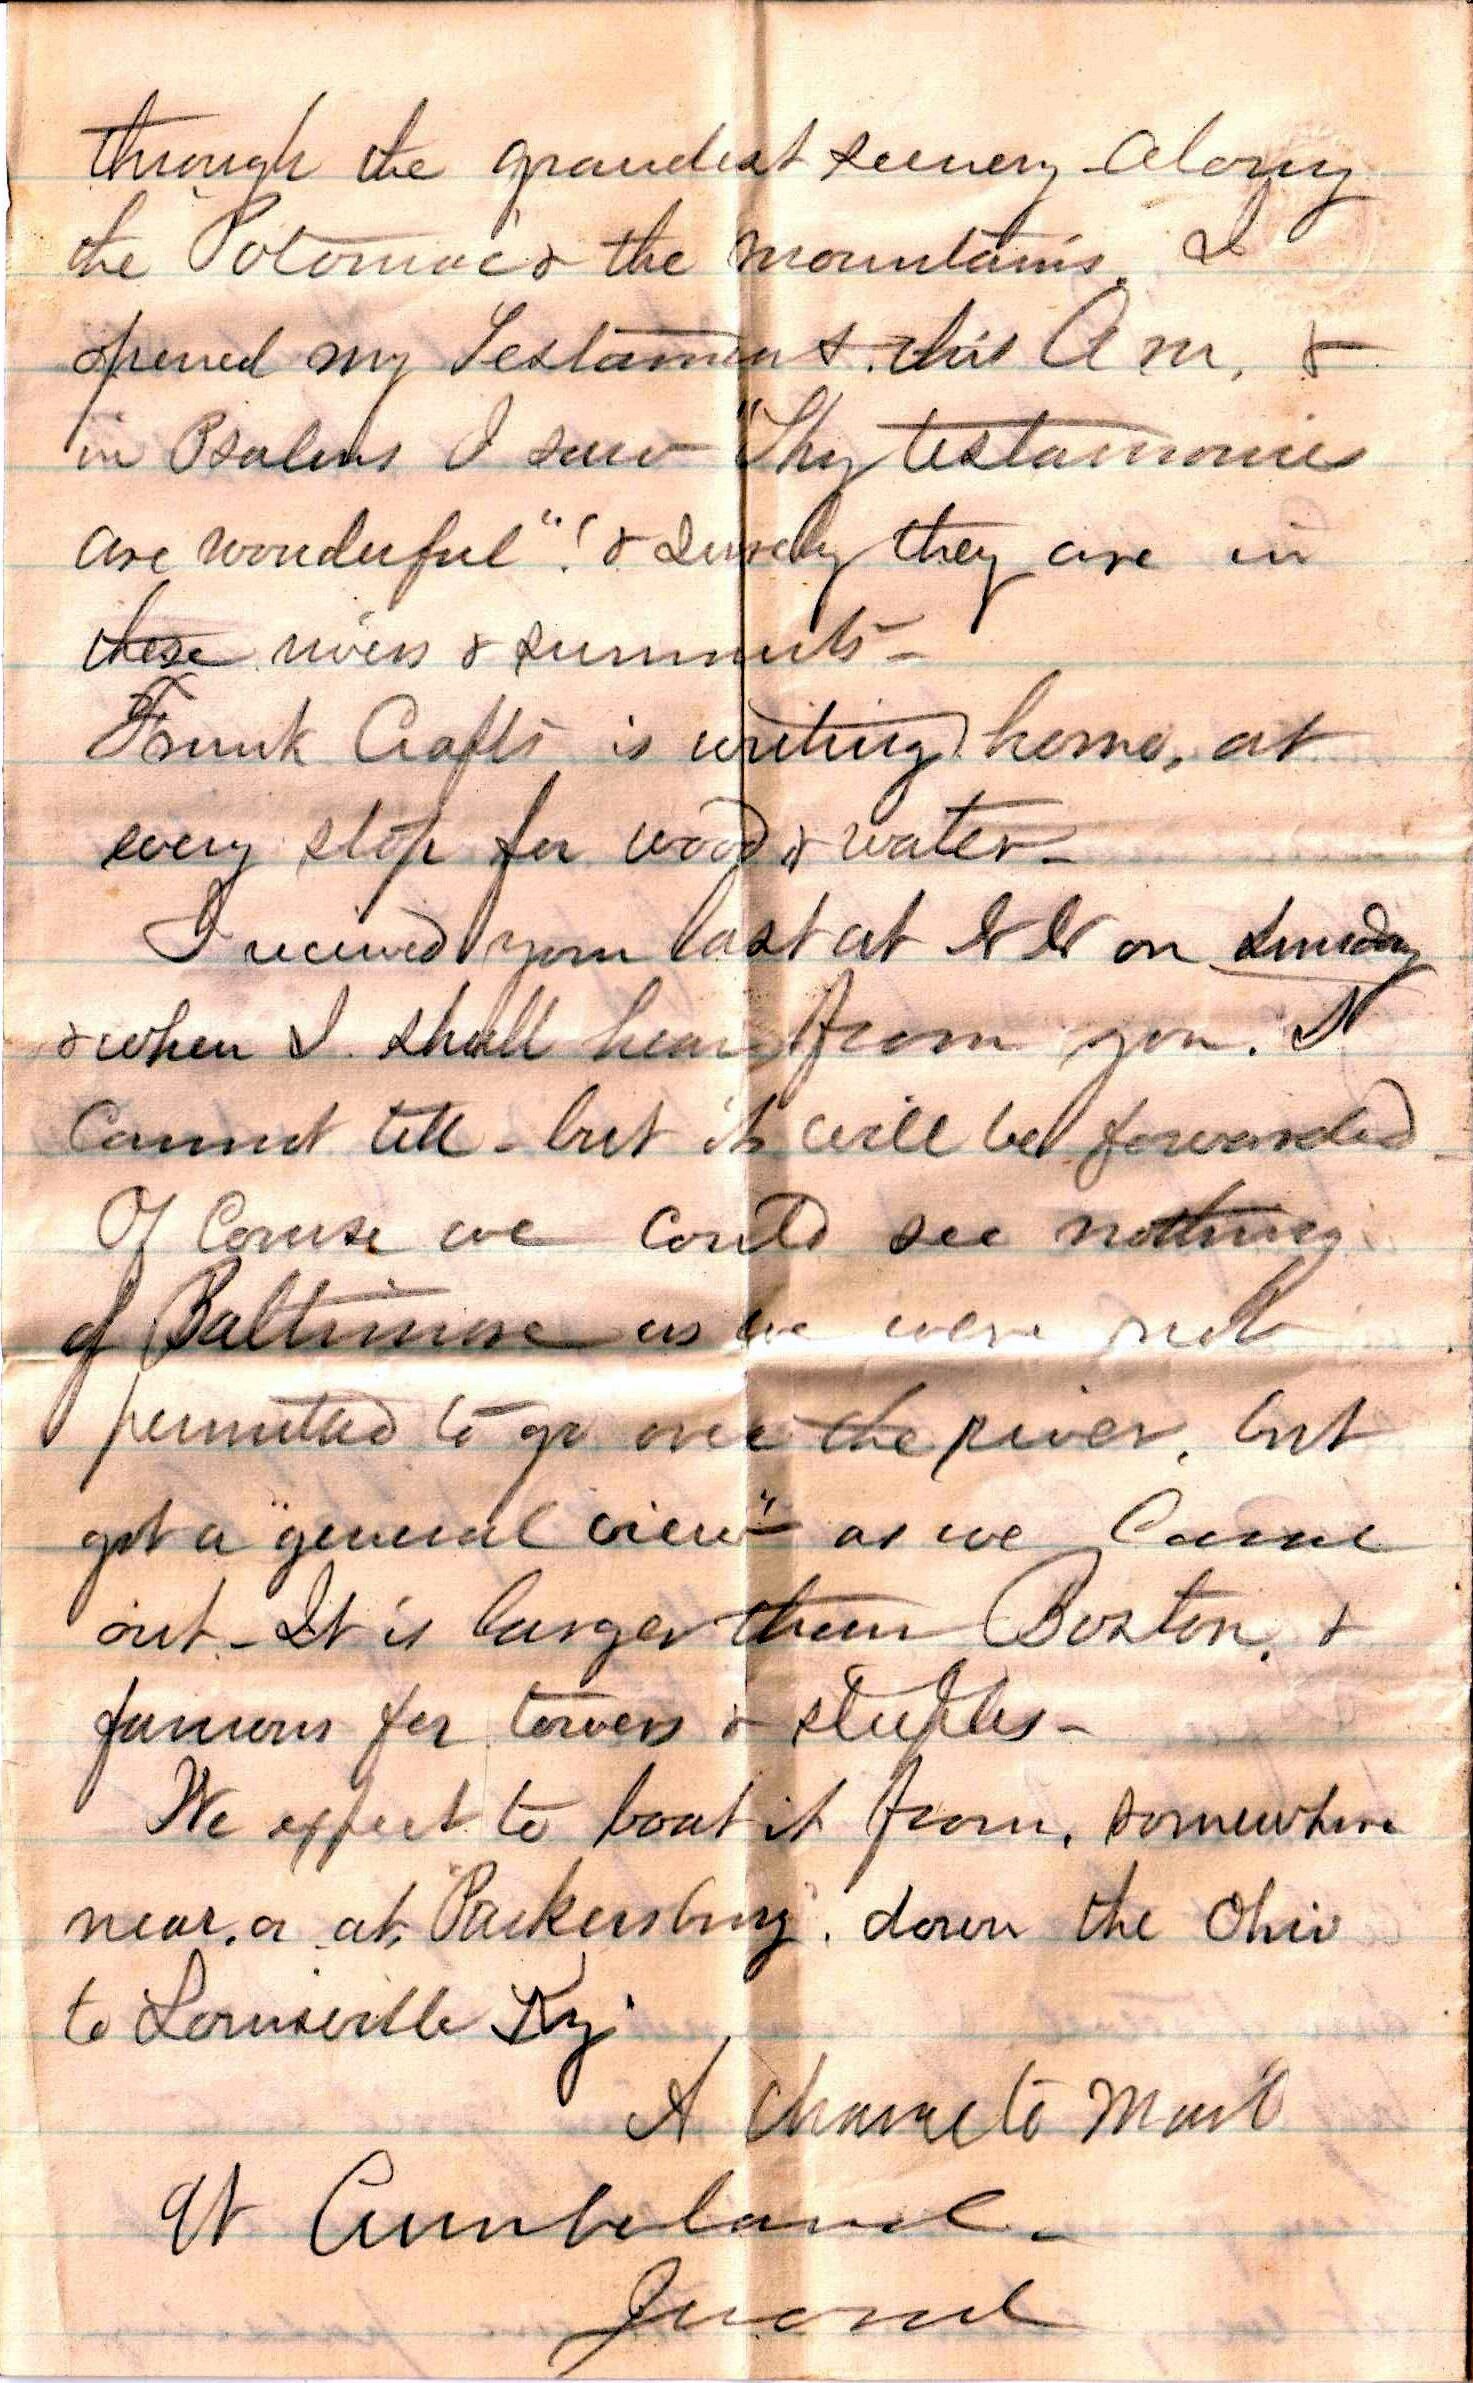 through the grandest scenery along
the Potomac & the mountains. I
opened my Testament this A m, &
in Psalms I saw "Thy testamonies
are wonderful"! & surely they are in
these rivers & summits -
Frank Crafts is writing home, at
every stop for wood & water -
I received your last at on Sunday
& when I shall hear from you. I
cannot tell - but it will be forwarded -
Of Course we could see nothing
of Baltimore as we were not
permitted to go over the river, but
got a "general view" as we Came
out - It is larger than Boston, &
famous for towers & steeples -
We expect to boat it from, somewhere
near, or at, "Parkersburg", down the Ohio
to Louisville Ky
A chance to Mail
At Cumberland -